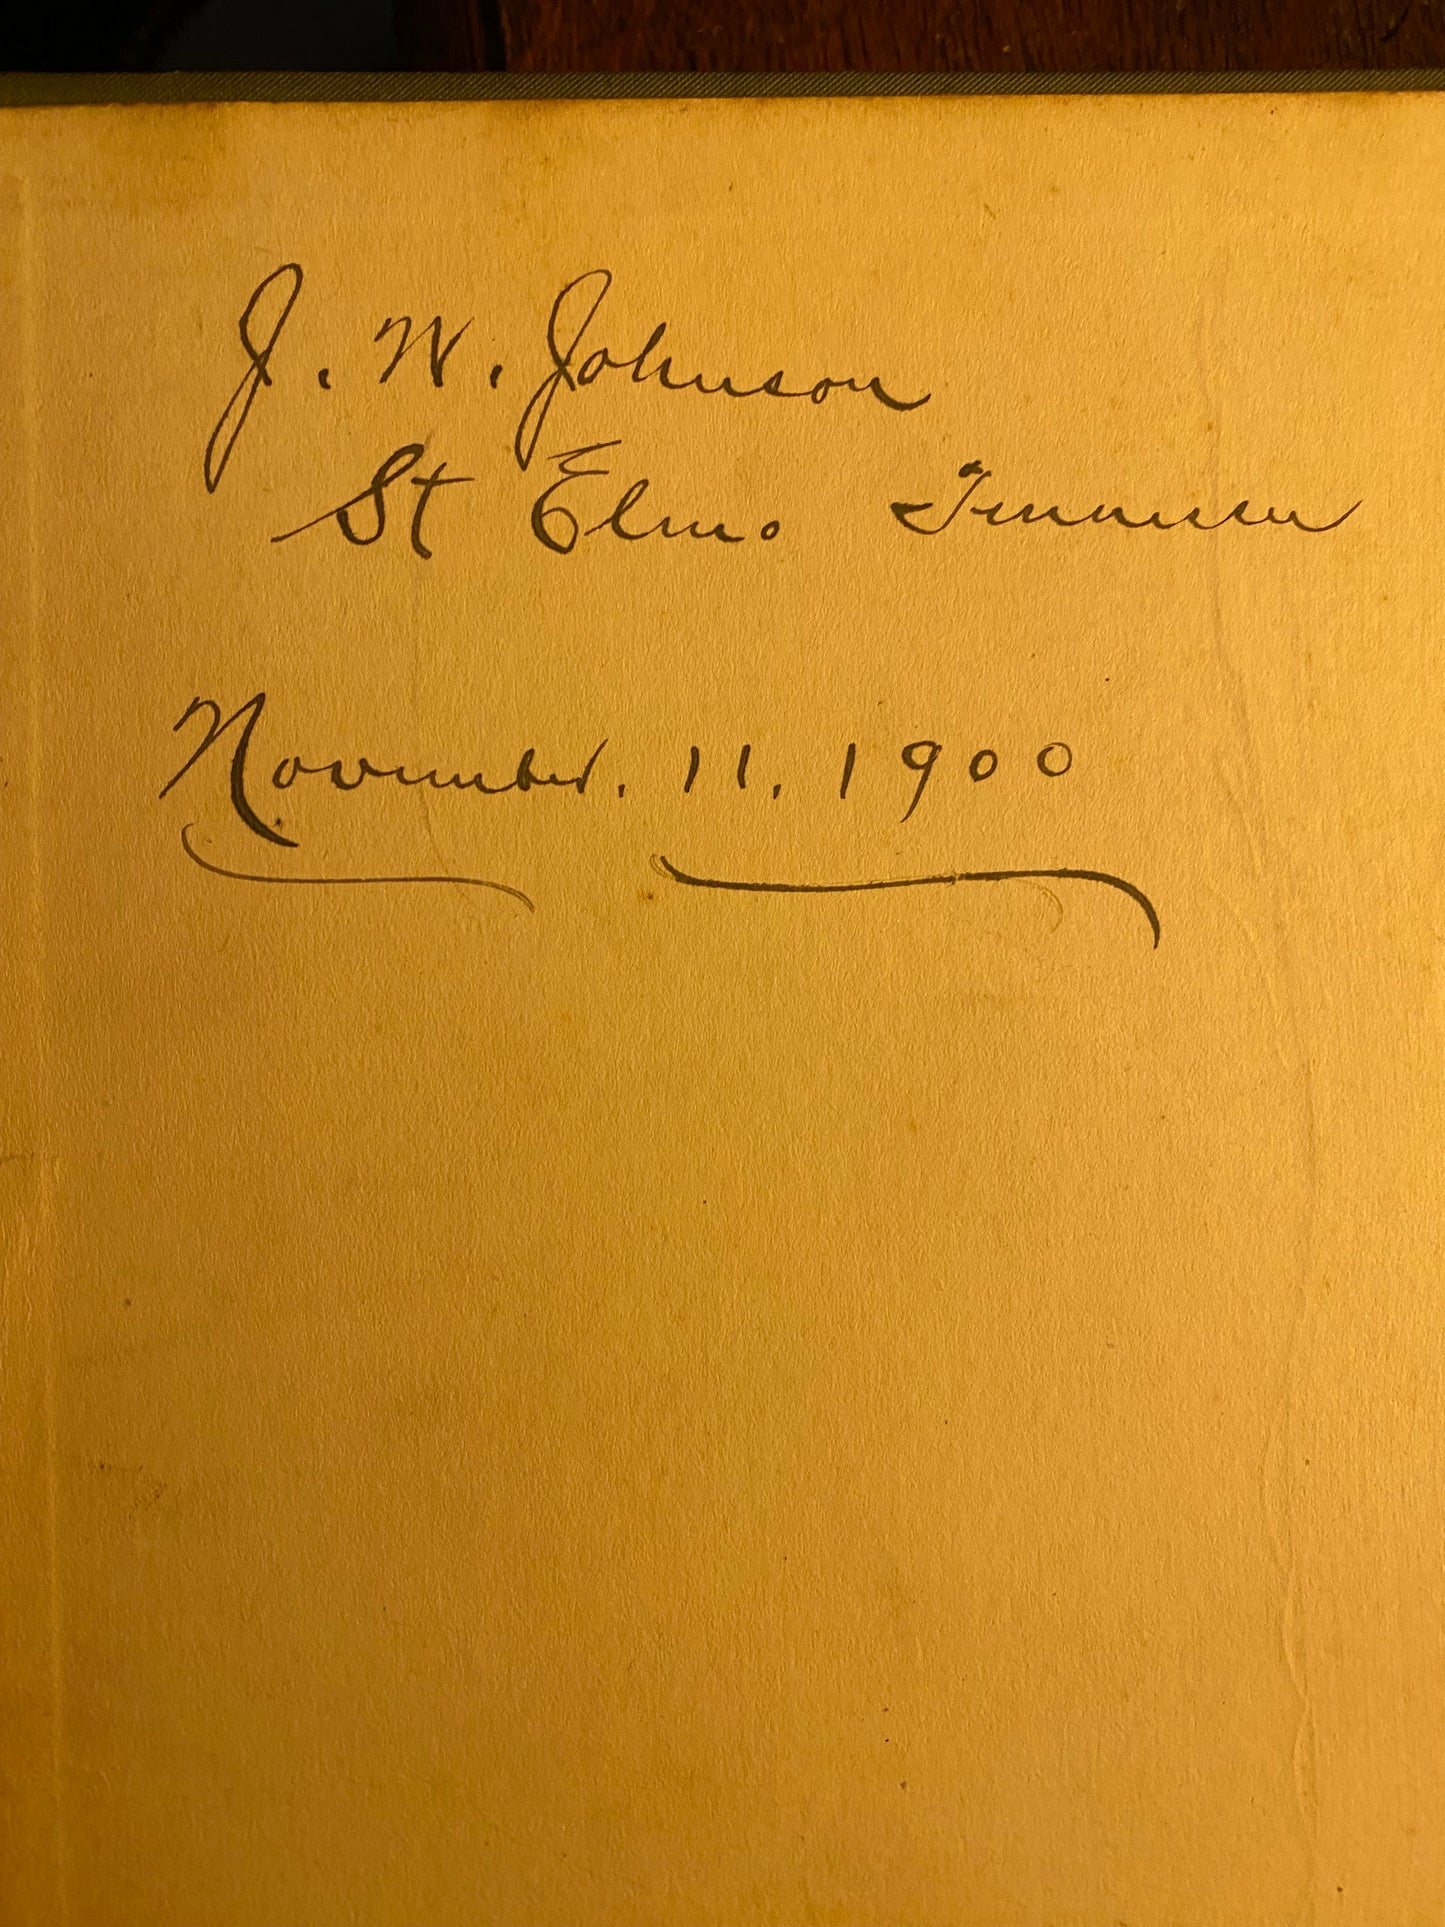 J. W. Johnson
St Elmo Tennessee
November. 11. 1900